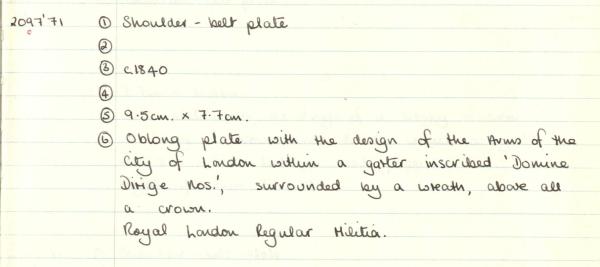 2097'71 ① Shoulder-belt plate
c ②
③ c.1840
④
⑤ 9.5cm. x 7.7cm.
⑥ Oblong plate with the design of the Arms of the
City of London within a garter inscribed 'Domine
Dirige Nos.', surrounded by a wreath, above all
a crown.
Royal London Regular Militia.